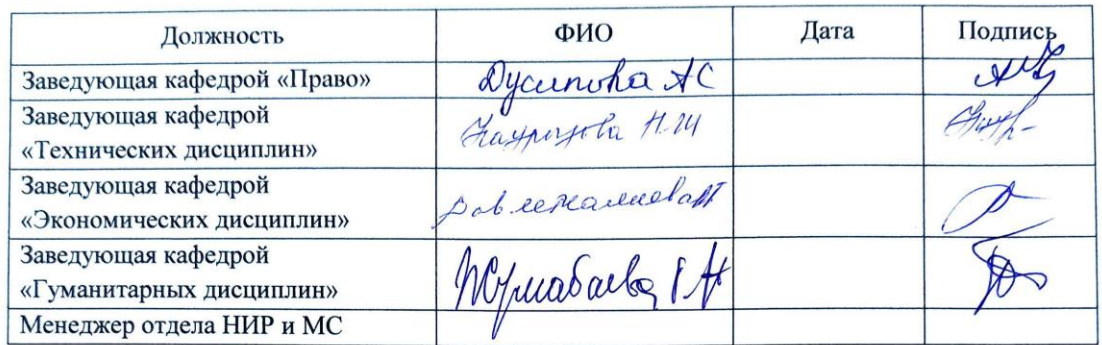 Должность ФИО Дата Подпись
Заведующая кафедрой «Право» Дусипова АС
Заведующая кафедрой
«Технических дисциплин» Н.Ш
Заведующая кафедрой
«Экономических дисциплин»
Заведующая кафедрой
«Гуманитарных дисциплин» Жумабаева Г.Н
Менеджер отдела НИР и МС